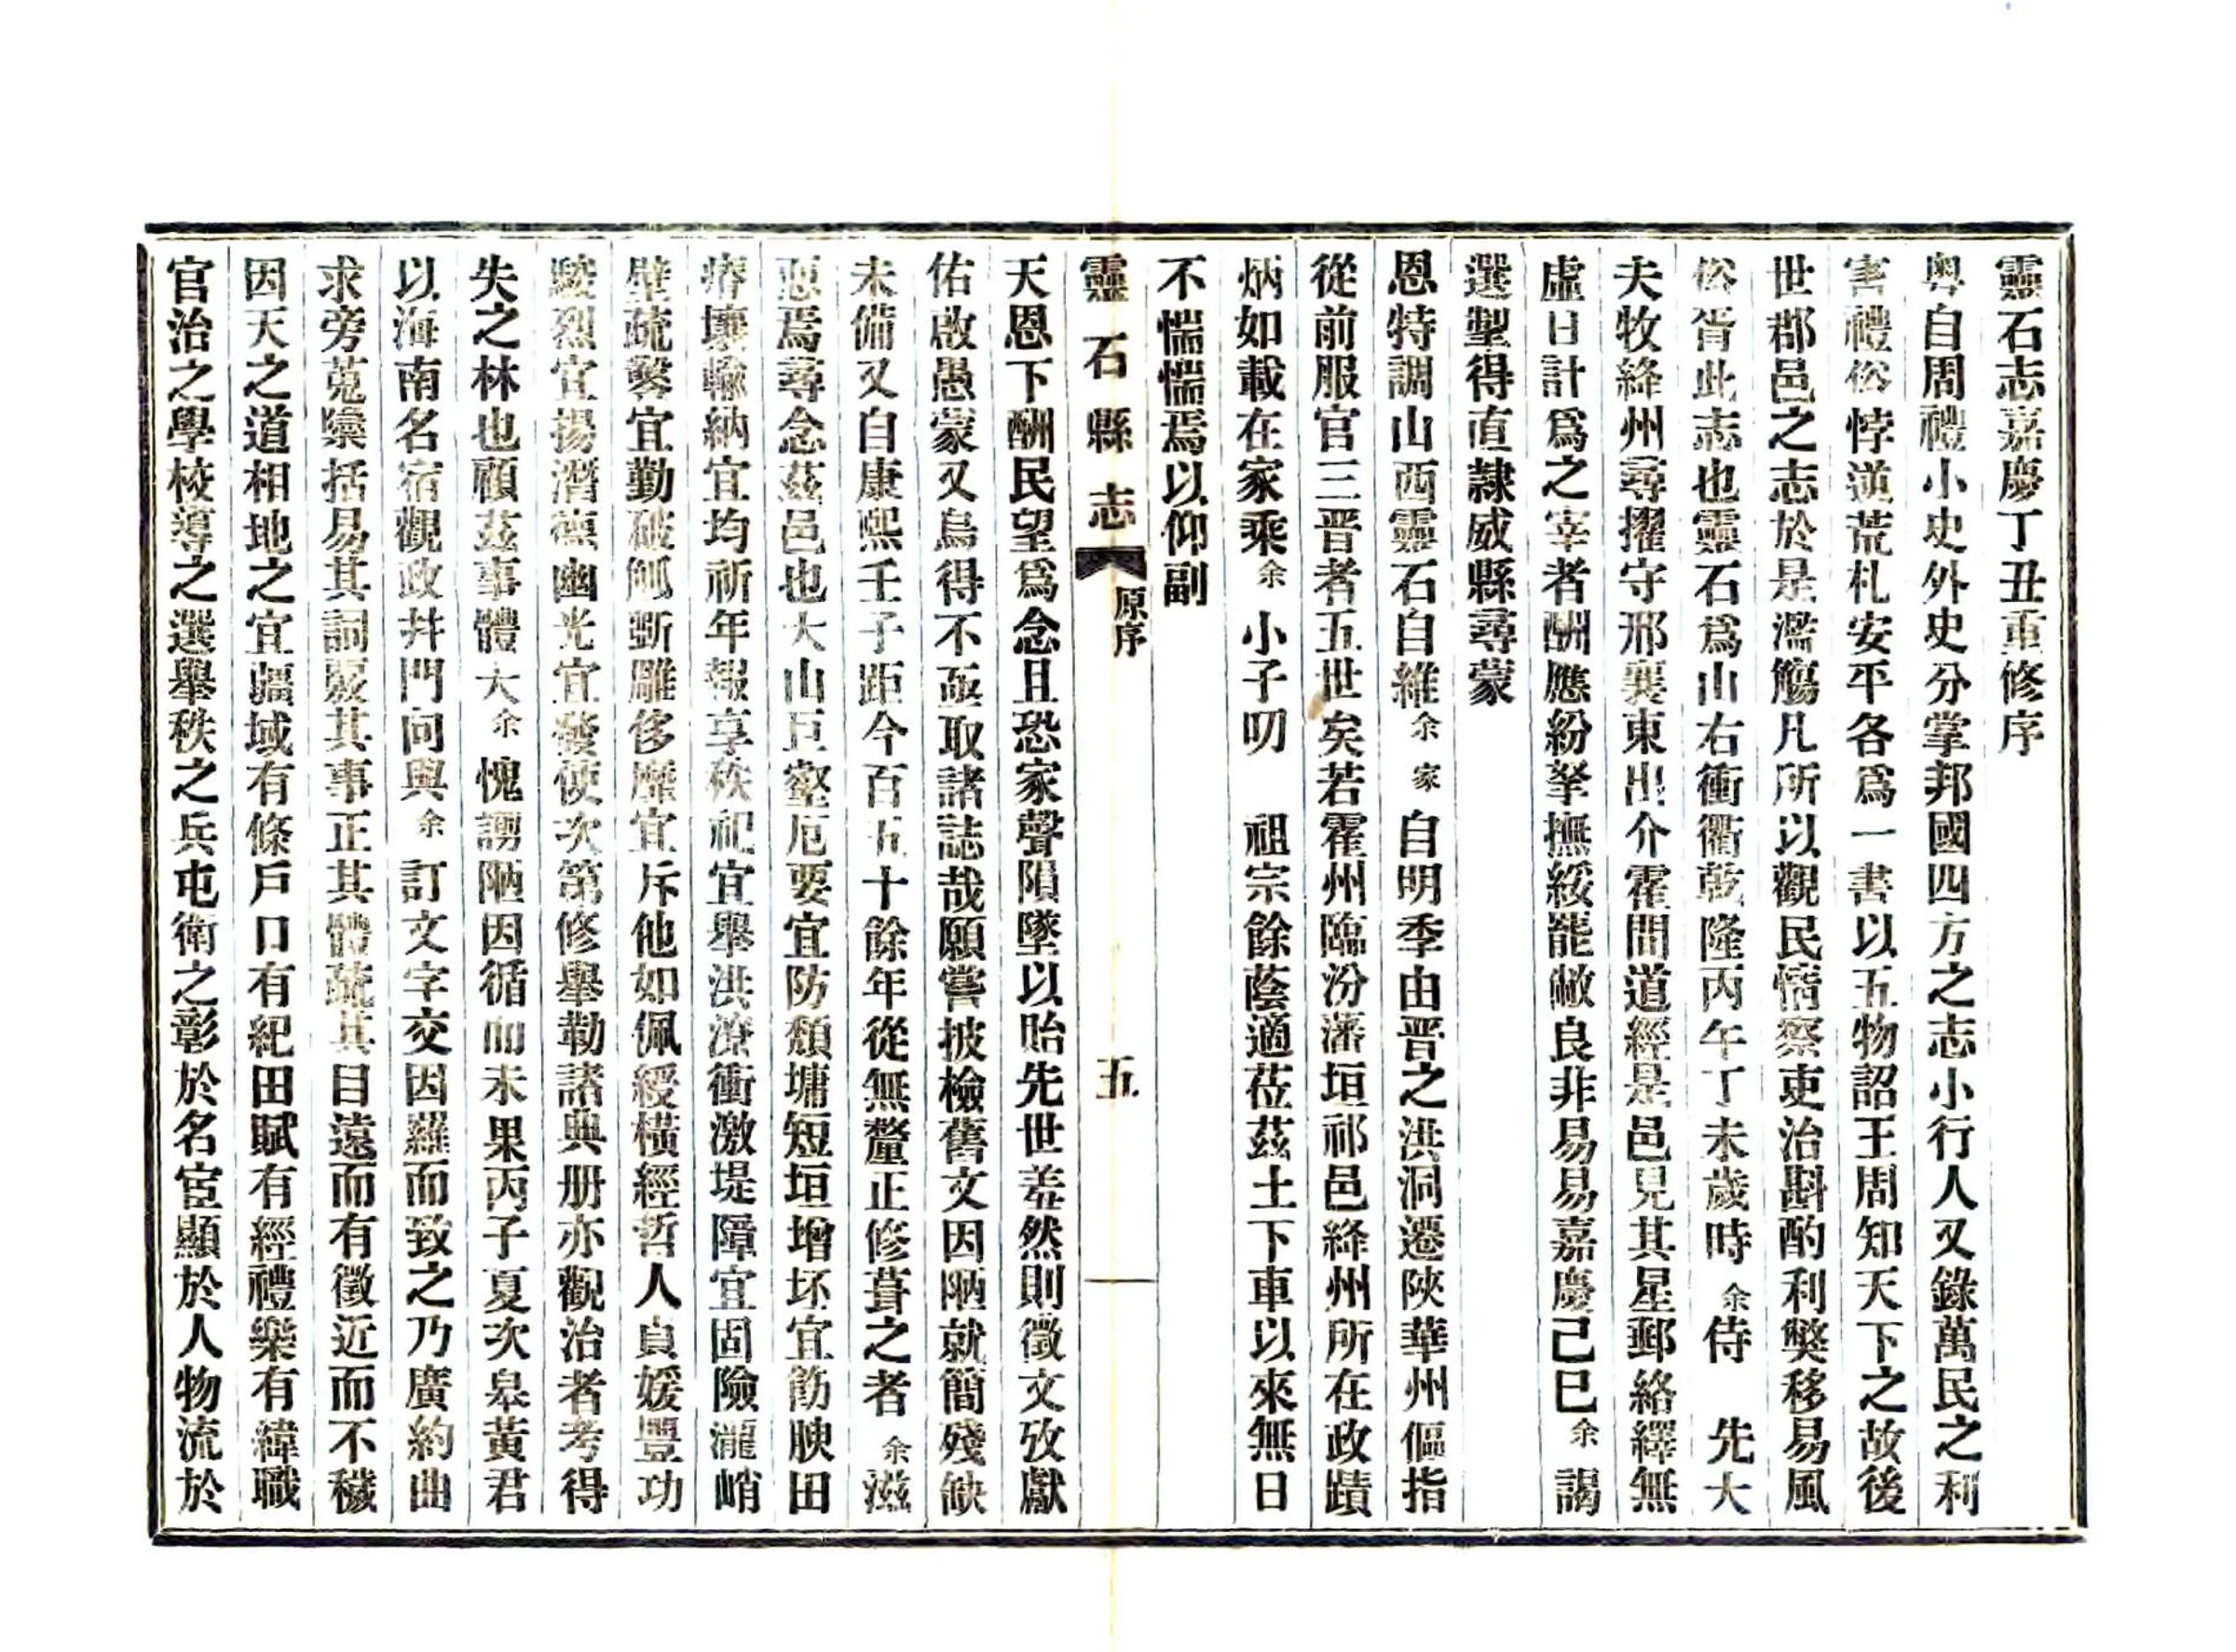 靈石志嘉慶丁丑重修序
粵自周禮小史外史分掌邦國四方之志小行人又錄萬民之利
害禮俗悖逆荒札安平各爲一書以五物詔王周知天下之故後
世郡邑之志於是濫觴凡所以觀民情察吏治斟酌利獘移易風
俗胥此志也靈石爲山右衝衢乾隆丙午丁未歲時余侍　先大
夫牧絳州尋擢守邢襄東出介霍間道經是邑見其星郵絡繹無
虛日計爲之宰者酬應紛拏撫綏罷敝良非易易嘉慶己巳余謁
選掣得直隸威縣尋蒙
恩特調山西靈石自維余家自明季由晋之洪洞遷陝華州傴指
從前服官三晋者五世矣若霍州臨汾藩垣祁邑絳州所在政蹟
炳如載在家乘余小子叨　祖宗餘蔭適莅茲土下車以來無日
不惴惴焉以仰副
靈石縣志　原序　五
天恩下酬民望爲念且恐家聲隕墜以貽先世羞然則徵文攷獻
佑啟愚蒙又烏得不亟取諸誌哉願嘗披檢舊文因陋就簡殘缺
未備又自康熙壬子距今百五十餘年從無釐正修葺之者余滋
恧焉尋念茲邑也大山巨壑厄要宜防頹墉短垣增坯宜飭腴田
瘠壤輸納宜均祈年報享秩祀宜舉洪潦衝激堤障宜固險瀧峭
壁疏鑿宜勤破觚斲雕侈靡宜斥他如佩綬橫經哲人貞媛豐功
駿烈宜揚潛德幽光宜發使次第修舉勒諸典册亦觀治者考得
失之林也顧茲事體大余愧謭陋因循而未果丙子夏次皋黃君
以海南名宿觀政幷門向與余訂文字交因羅而致之乃廣約曲
求旁蒐檃括易其詞覈其事正其體疏其目遠而有徵近而不穢
因天之道相地之宜疆域有條戶口有紀田賦有經禮樂有緯職
官治之學校導之選舉秩之兵屯衛之彰於名宦顯於人物流於